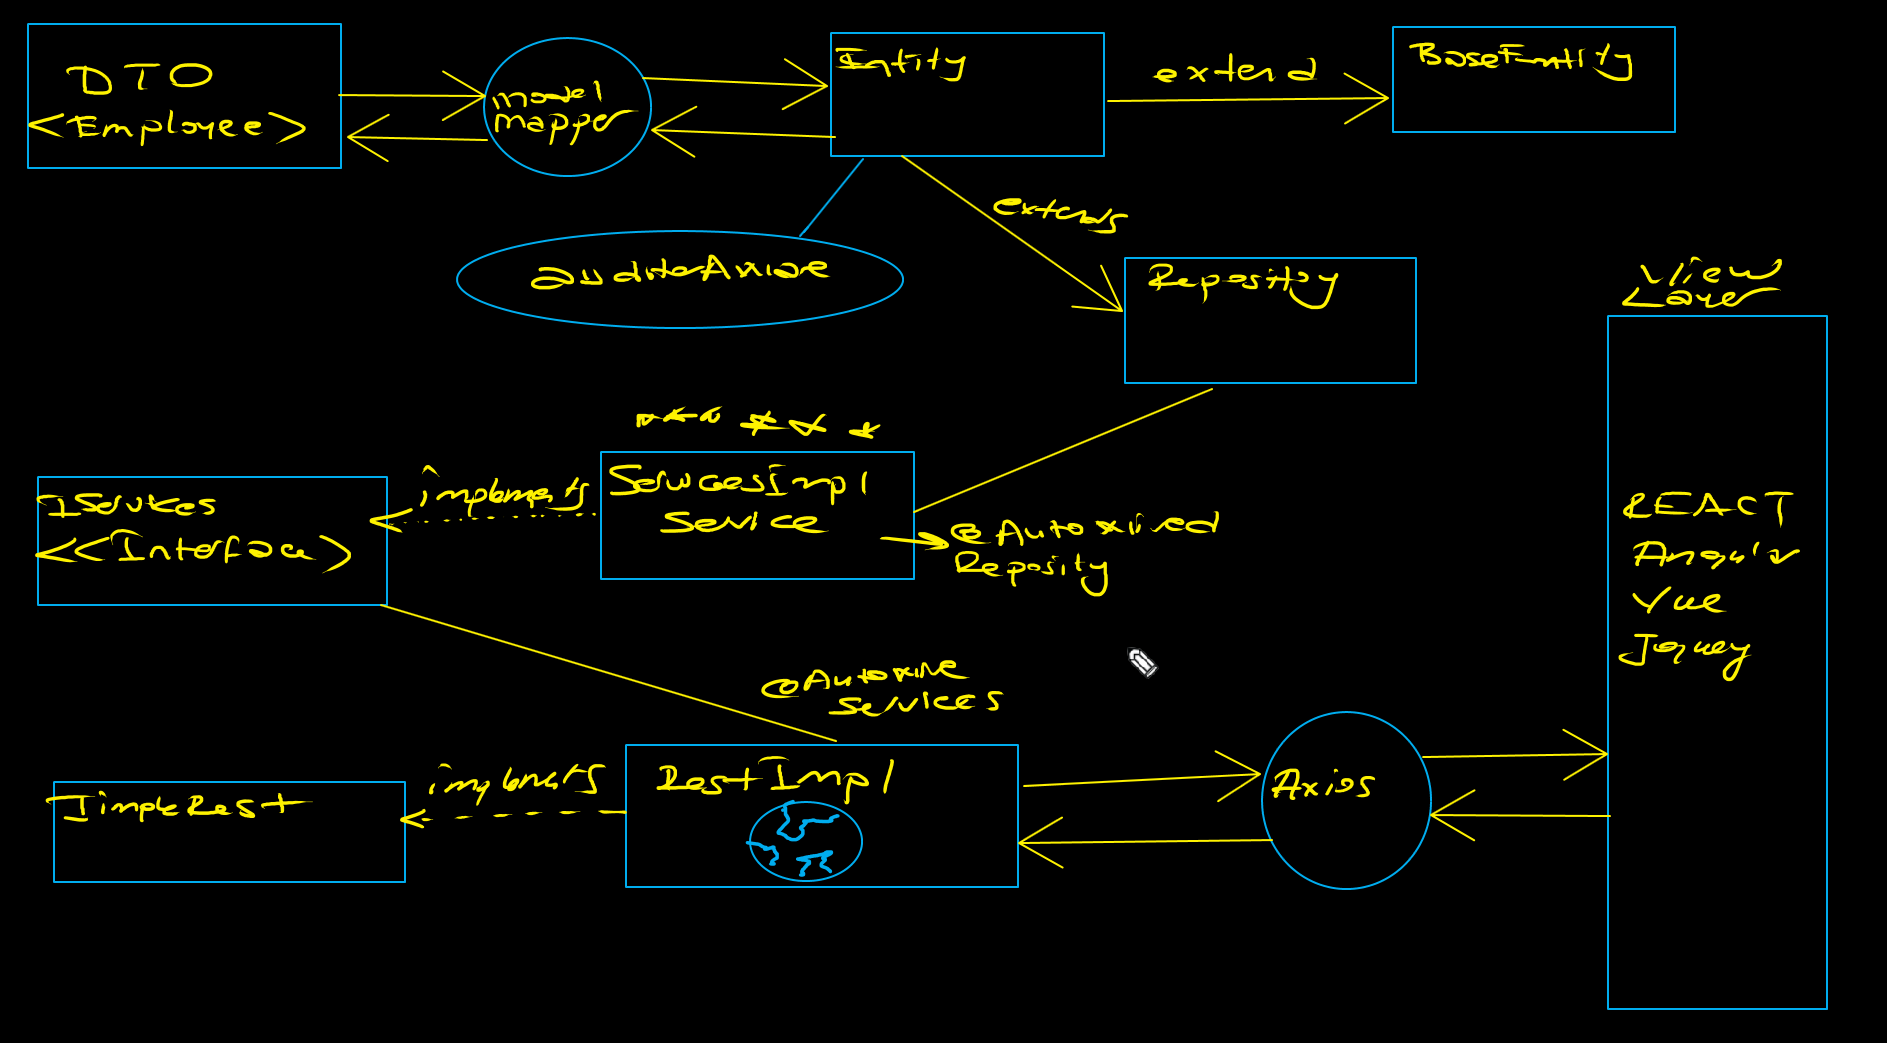 DTO
<Employee>
model
mapper
Entity
extend
BaseEntity
extends
auditerAware
Repository
View
Layer
IServices
<<Interface>
implements
ServicesImpl
Service
@Autowired
Reposity
REACT
Angular
Vue
Jquey
@Autowire
Services
implenets
RestImpl
Axios